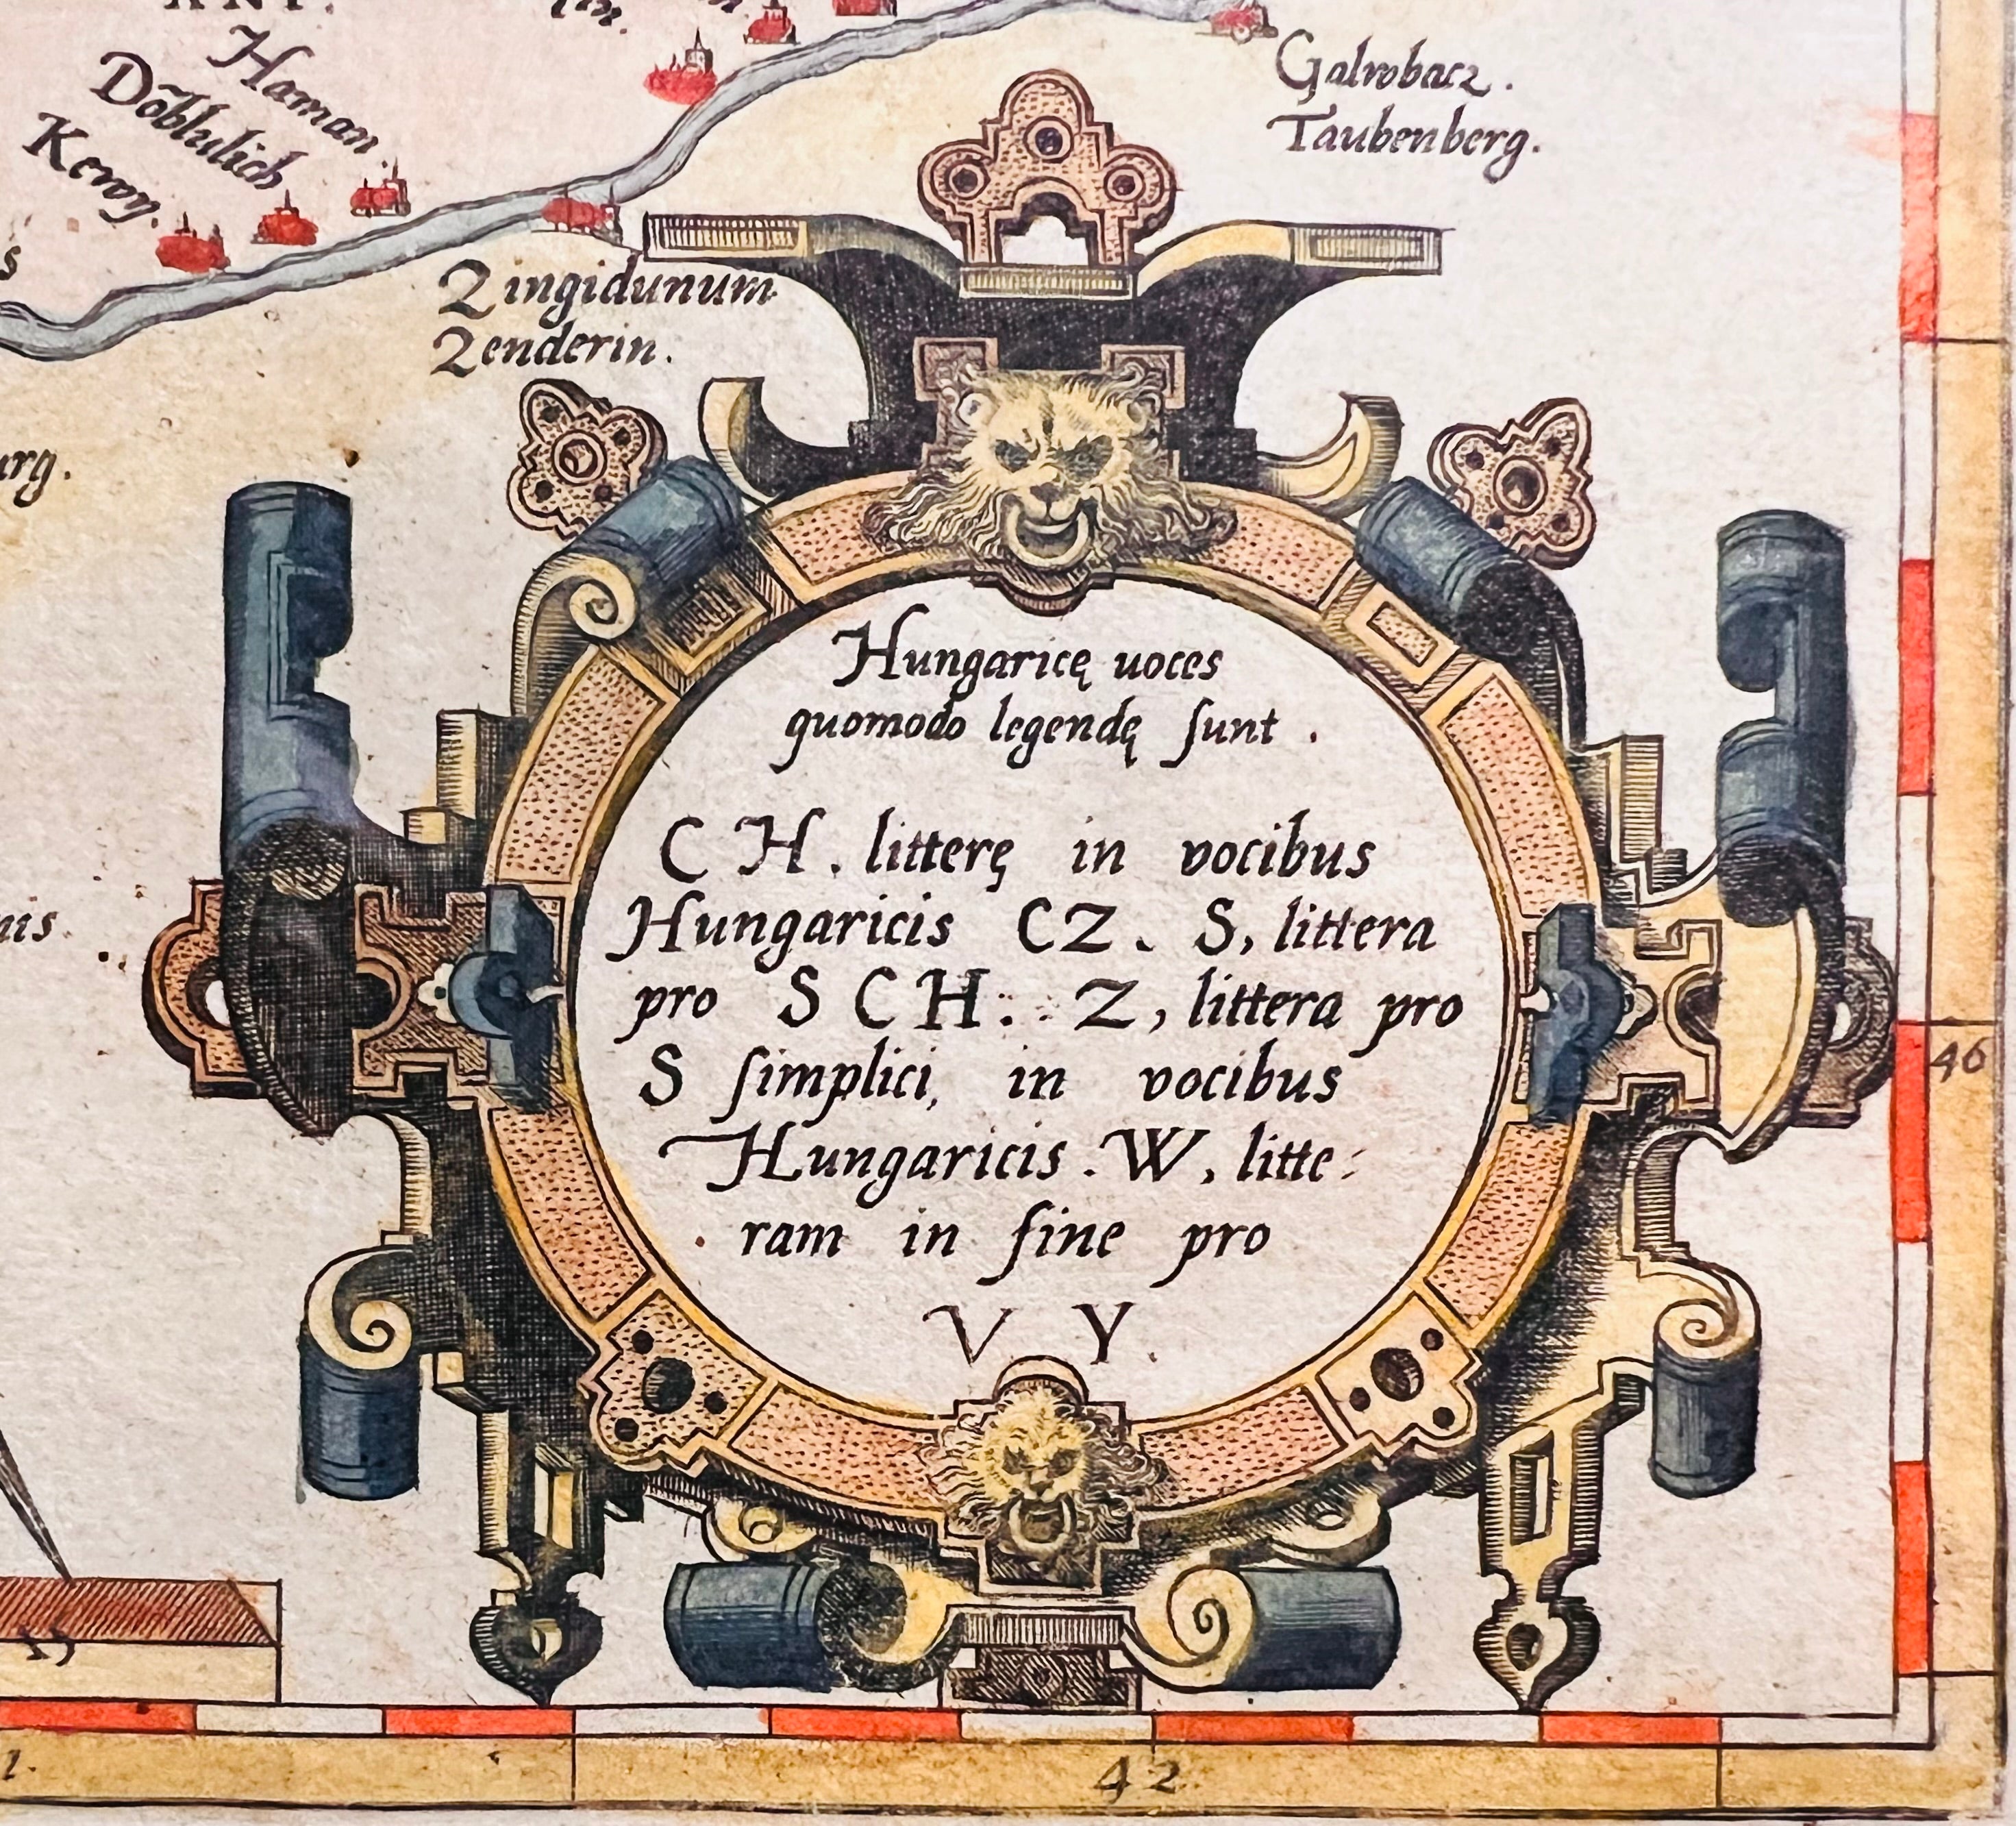 Haman.
Dõblulich
Keroy.
Galrobacz.
Taubenberg.
Zingidunum
Zenderin.
Hungaricę uoces
quomodo legendę ſunt.
CH. litterę in vocibus
Hungaricis CZ. S, littera
pro SCH: Z, littera pro
S ſimplici, in vocibus
Hungaricis. W, litte:
ram in fine pro
V Y.
46
42